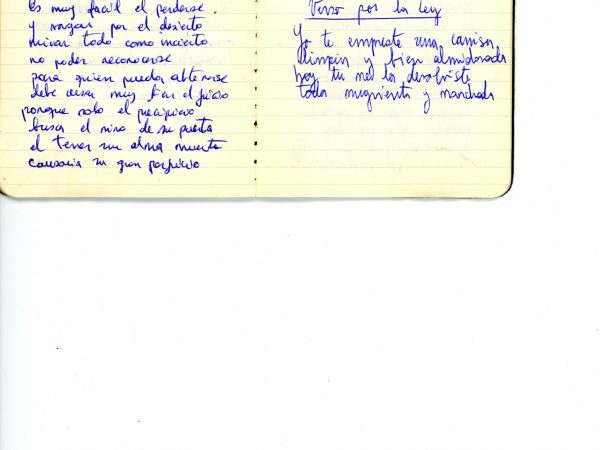 Es muy facil el perderse
y vagar por el desierto
mirar todo como incierto
no poder reconocerse
para quien pueda
debe usar muy bien el juicio
porque solo el precipicio
busca el nino de su puerta
el tener un alma muerta
causaria su gran perjuicio
Verso por la ley
Yo te empreste una camisa
limpia y bien almidonada
hoy tu me la devolviste
toda mugrienta y manchada